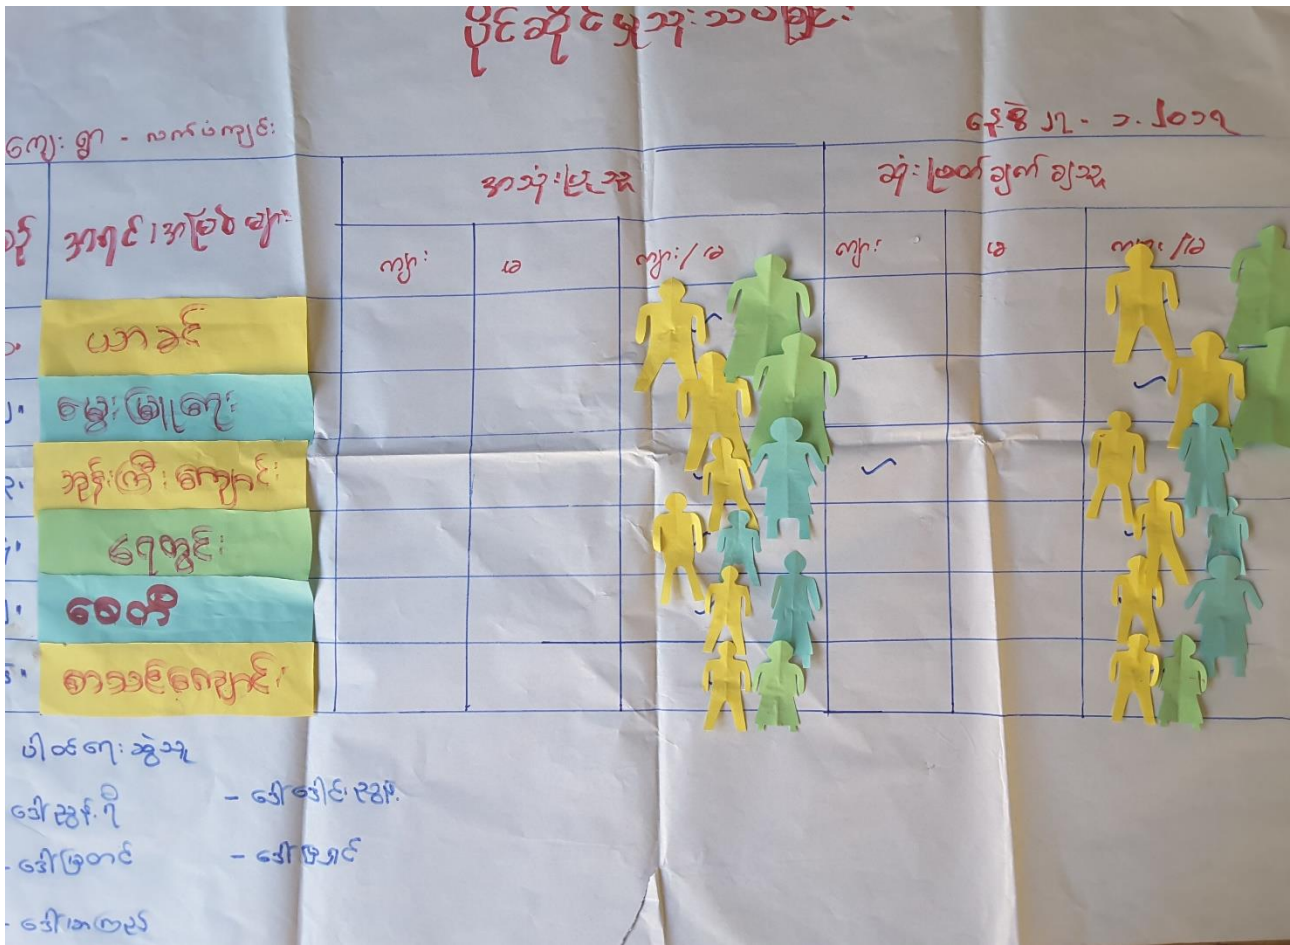 ပိုင်ဆိုင်မှုသုံးသပ်ခြင်း
ကျေးရွာ - လက်ပံကျင်း
နေ့စွဲ ၂၇ - ၁ - ၂၀၁၇
စဉ်
အရင်းအမြစ်များ
အသုံးပြုသူ
ဆုံးဖြတ်ချက်ချသူ
ကျား
မ
ကျား/မ
ကျား
မ
ကျား/မ
၁.
ယာခင်း
၂.
မွေးမြူရေး
၃.
ဘုန်းကြီးကျောင်း
ရေတွင်း
စေတီ
စာသင်ကျောင်း
ပါဝင်ရေးဆွဲသူ
ဒေါ်ညွန့်ရီ
- ဒေါ်ခေါင်းညွန့်
- ဒေါ်မြတင်
- ဒေါ်မြရှင်